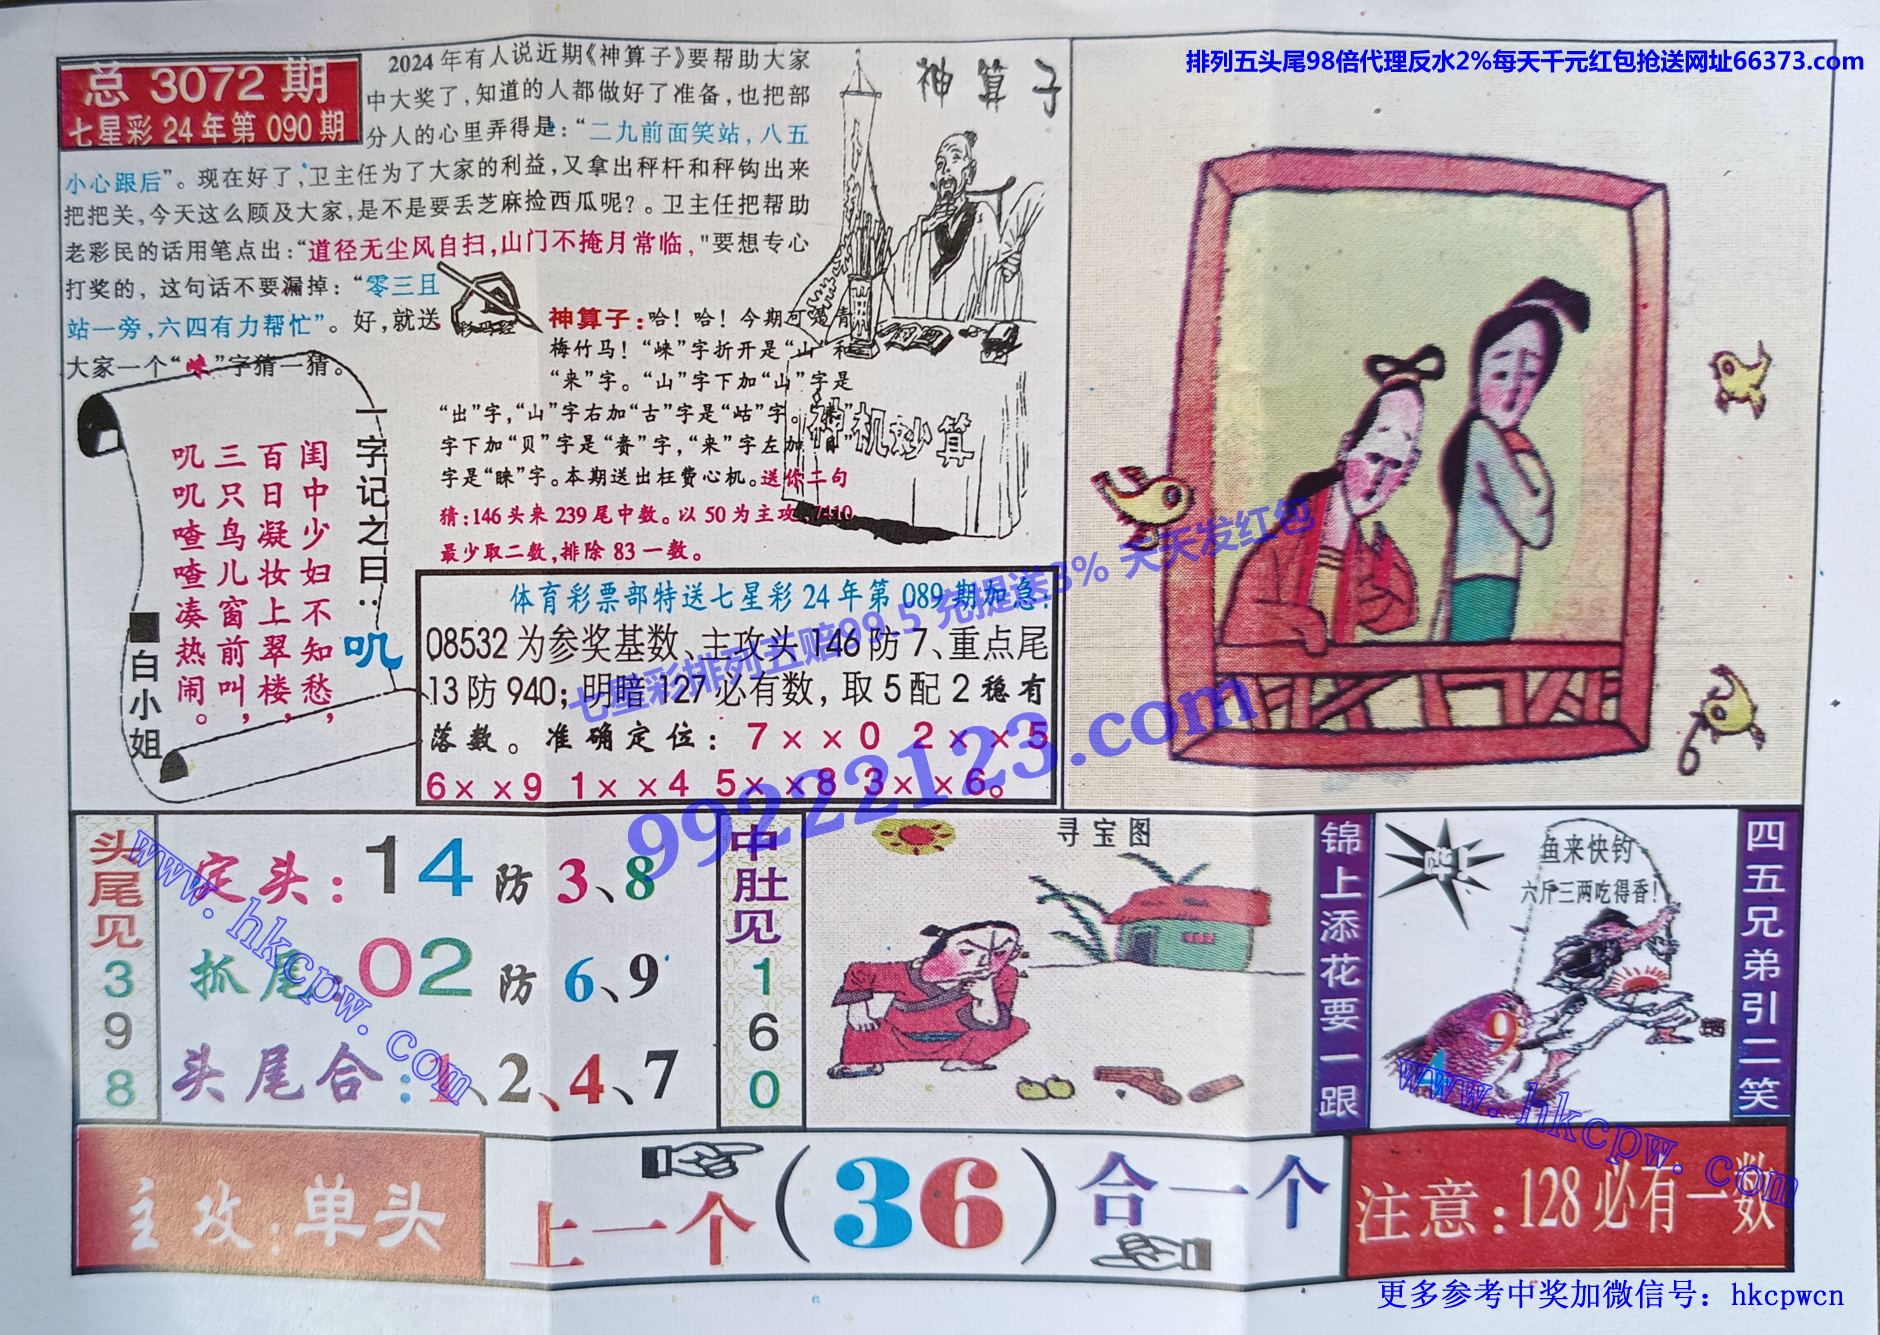 排列五头尾98倍代理反水2%每天千元红包抢送网址66373.com
总 3072 期
七星彩 24 年第 090 期
2024年有人说近期《神算子》要帮助大家
中大奖了,知道的人都做好了准备,也把部
分人的心里弄得是:“二九前面笑站,八五
小心跟后”。现在好了,卫主任为了大家的利益,又拿出秤杆和秤钩出来
把把关,今天这么顾及大家,是不是要丢芝麻捡西瓜呢?。卫主任把帮助
老彩民的话用笔点出:“道径无尘风自扫,山门不掩月常临,"要想专心
打奖的,这句话不要漏掉:“零三且
站一旁,六四有力帮忙”。好,就送
大家一个“崃”字猜一猜。
神算子
神算子:哈!哈!今期可遇青
梅竹马!“崃”字折开是“山”和
“来”字。“山”字下加“山”字是
“出”字,“山”字右加“古”字是“岵”字。“来”
字下加“贝”字是“赉”字,“来”字左加“目”
字是“睐”字。本期送出枉费心机。送你二句
猜:146头来239尾中数。以50为主攻,7410
最少取二数,排除83一数。
神机妙算
一字记之曰:叽
闺中少妇不知愁,
百日凝妆上翠楼,
三只鸟儿窗前叫,
叽叽喳喳凑热闹。
■白小姐
体育彩票部特送七星彩24年第089期加急!
08532为参奖基数、主攻头146防7、重点尾
13防940;明暗127必有数,取5配2稳有
落数。准确定位:7××0 2××5
6××9 1××4 5××8 3××6。
七星彩排列五赔99.5 充提送3% 天天发红包
99222123.com
头尾见398
定头:14防3、8
抓尾:02防6、9
头尾合:1、2、4、7
中肚见160
寻宝图
锦上添花要一跟
鱼来快钓
六斤三两吃得香!
9
四五兄弟引二笑
www.hkcpw.com
www.hkcpw.com
主攻:单头
上一个(36)合一个
注意:128必有一数
更多参考中奖加微信号:hkcpwcn